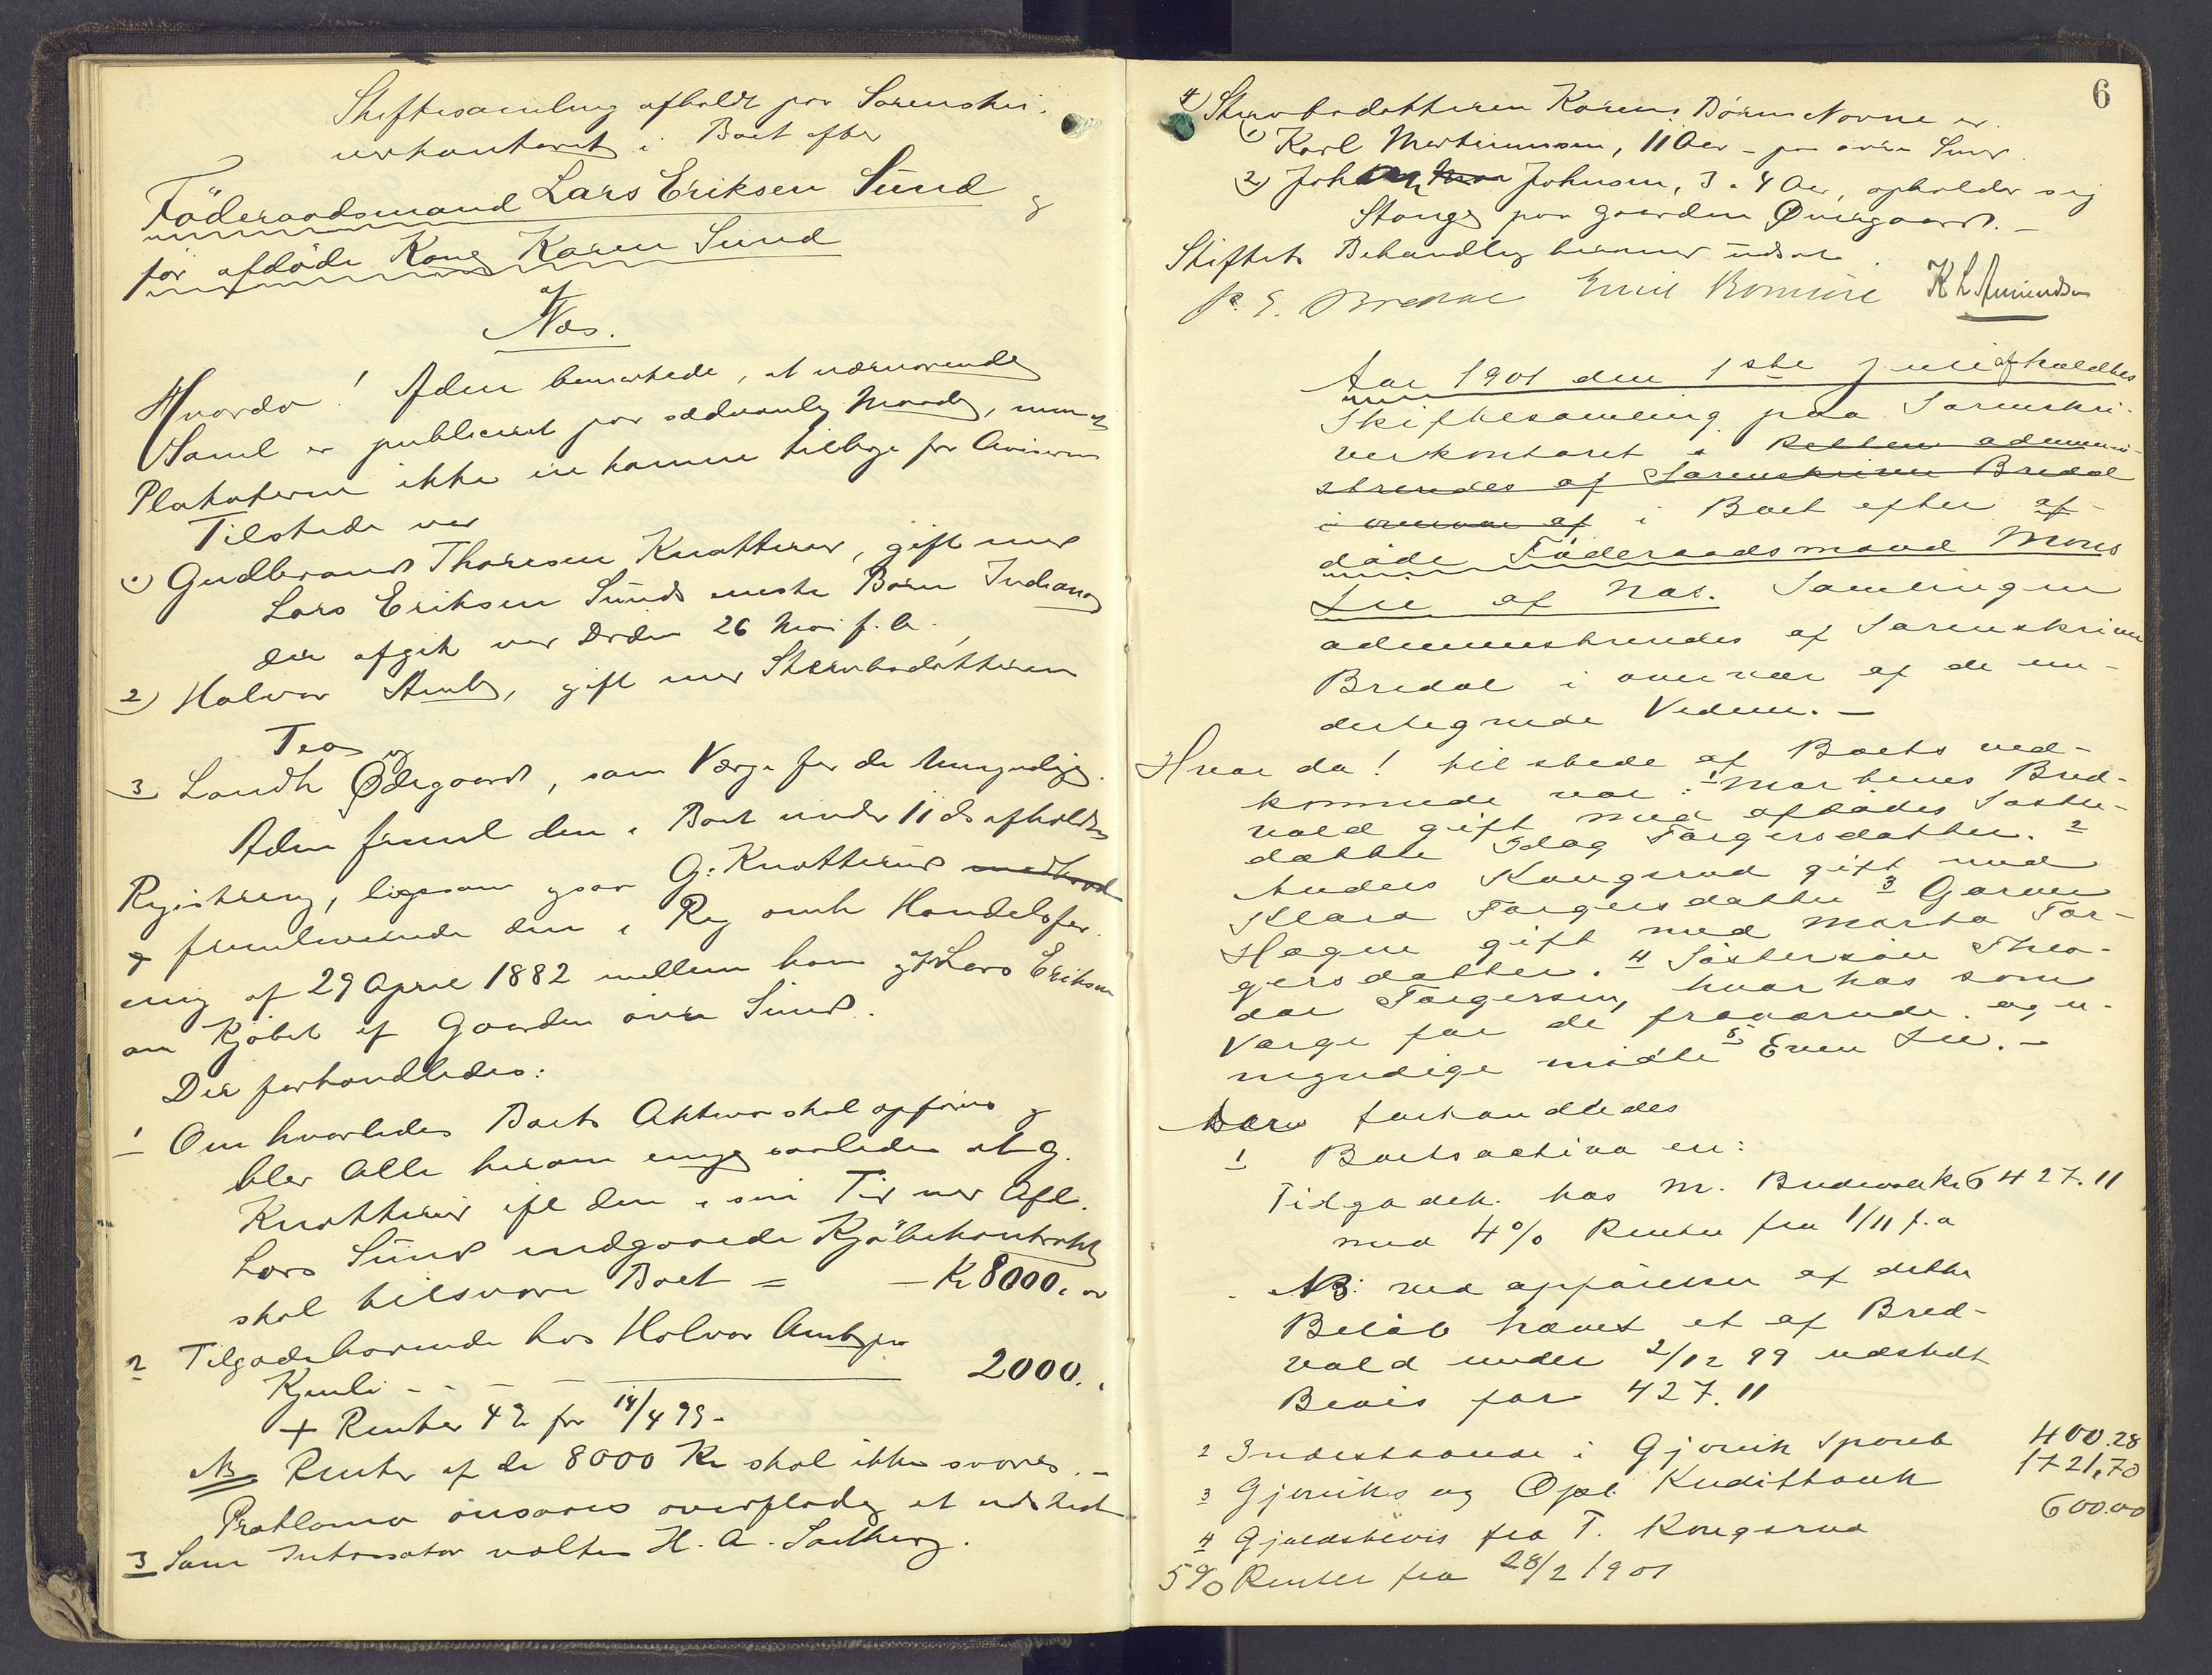 Skiftesamling afholdt paa Sorenskri-
verkontoret i Boet efter
Föderaadsmand Lars Eriksen Sund og
før afdöde Kone Karen Sund
af
Næs.
Hvorda! Adm bemærkede, at nærværende
Saml er publiceret paa sædvanlig Maade, men
Plakaterne ikke er komne tilbage fra Aviserne
Tilstede var
1) Gudbrand Thoresen Knatterud, gift med
Lars Eriksen Sunds eneste Barn Indiana
der afgik ved Døden 26 Mai f. A.
2) Halvor Amb, gift med Stervbodatteren
Tea og
3 Landh Ødegaard, som Værge for de Umyndige.
Adm freml den i Boet under 11 ds afholdte
Registrering, ligesom ogsaa G. Knatterud medhavde
+ fremleverede den i Reg omh Handelsfor
ening af 29 April 1882 mellem ham og Lars Eriksen
om Kjøbet af Gaarden øvre Sund.
Der forhandledes:
1 Om hvorledes Boets Aktiva skal opføres og
blev Alle herom enige saaledes at G.
Knatterud ifl den i sin Tid med Afd.
Lars Sund indgaaede Kjöbekontrakt
skal tilsvare Boet = - Kr 8000. 00
2 Tilgodehavende hos Halvor Amb paa
Kjenli - - - 2000. .
+ Renter 4 % fra 14/4 99 -
NB Renter af de 8000 Kr skal ikke svares. -
Proklama ansaaes overflødig at udstede
3 Som Inkassator valtes H. A. Sætherg.
6
4) Stervbodatteren Karens Börns Navne er
1) Karl Martinussen, 11 Aar - paa øvre Sund.
2) Johan Johnsen, 3 a 4 Aar, opholder sig
Stange paa Gaarden Øvergaard. -
Skiftets Behandling herover udsat.
P. E. Bredal Emil K L Amundsen
Aar 1901 den 1ste Juli afholdtes
Skiftesamling paa Sorenskri-
verkontoret i Retten admini-
streredes af Sorenskriver Bredal
i overvær af i Boet efter af-
døde Föderaadsmand Mons
Lie af Næs. Samlingen
administreredes af Sorenskriver
Bredal i overvær af de un-
dertegnede Vidner. -
Hvor da! tilstede af Boets ved-
kommende var: 1 Martinus Bred-
vold gift med afdødes Søster-
datter Idag Torgersdatter. 2
Anders Kongsrud gift med
Klara Torgersdatter 3 Garm
Hagen gift med Marta Tor-
gersdatter. 4 Søstersøn Theo-
dor Torgersen, hvorhos som
Værge for de fraværende og u-
myndige mødte 5 Even Lie. -
Der forhandledes
1 Boets activa er:
Tilgodeh. hos M. Bredvold Kr 6 427.11
med 4 % Renter fra 1/11 f.a
NB: ved opførelsen af dette
Beløb hævet et af Bred-
vold under 2/12 99 udstedt
Bevis for 427.11
2 Indestaaende i Gjøvik Spareb 400.28
3 Gjøviks og Opl. Kreditbank 1721,70
4 Gjældsbevis fra T. Kongsrud 600.00
5 % Renter fra 28/2 1901